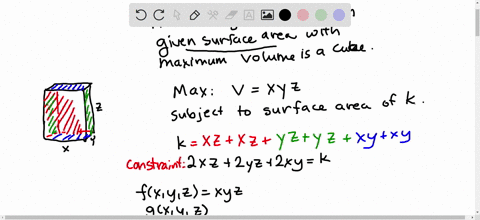 given surface area with
maximum volume is a cube.
Max: V = xyz
subject to surface area of k.
k = xz + xz + yz + yz + xy + xy
constraint: 2xz + 2yz + 2xy = k
z
y
x
f(x,y,z) = xyz
g(x,y,z)